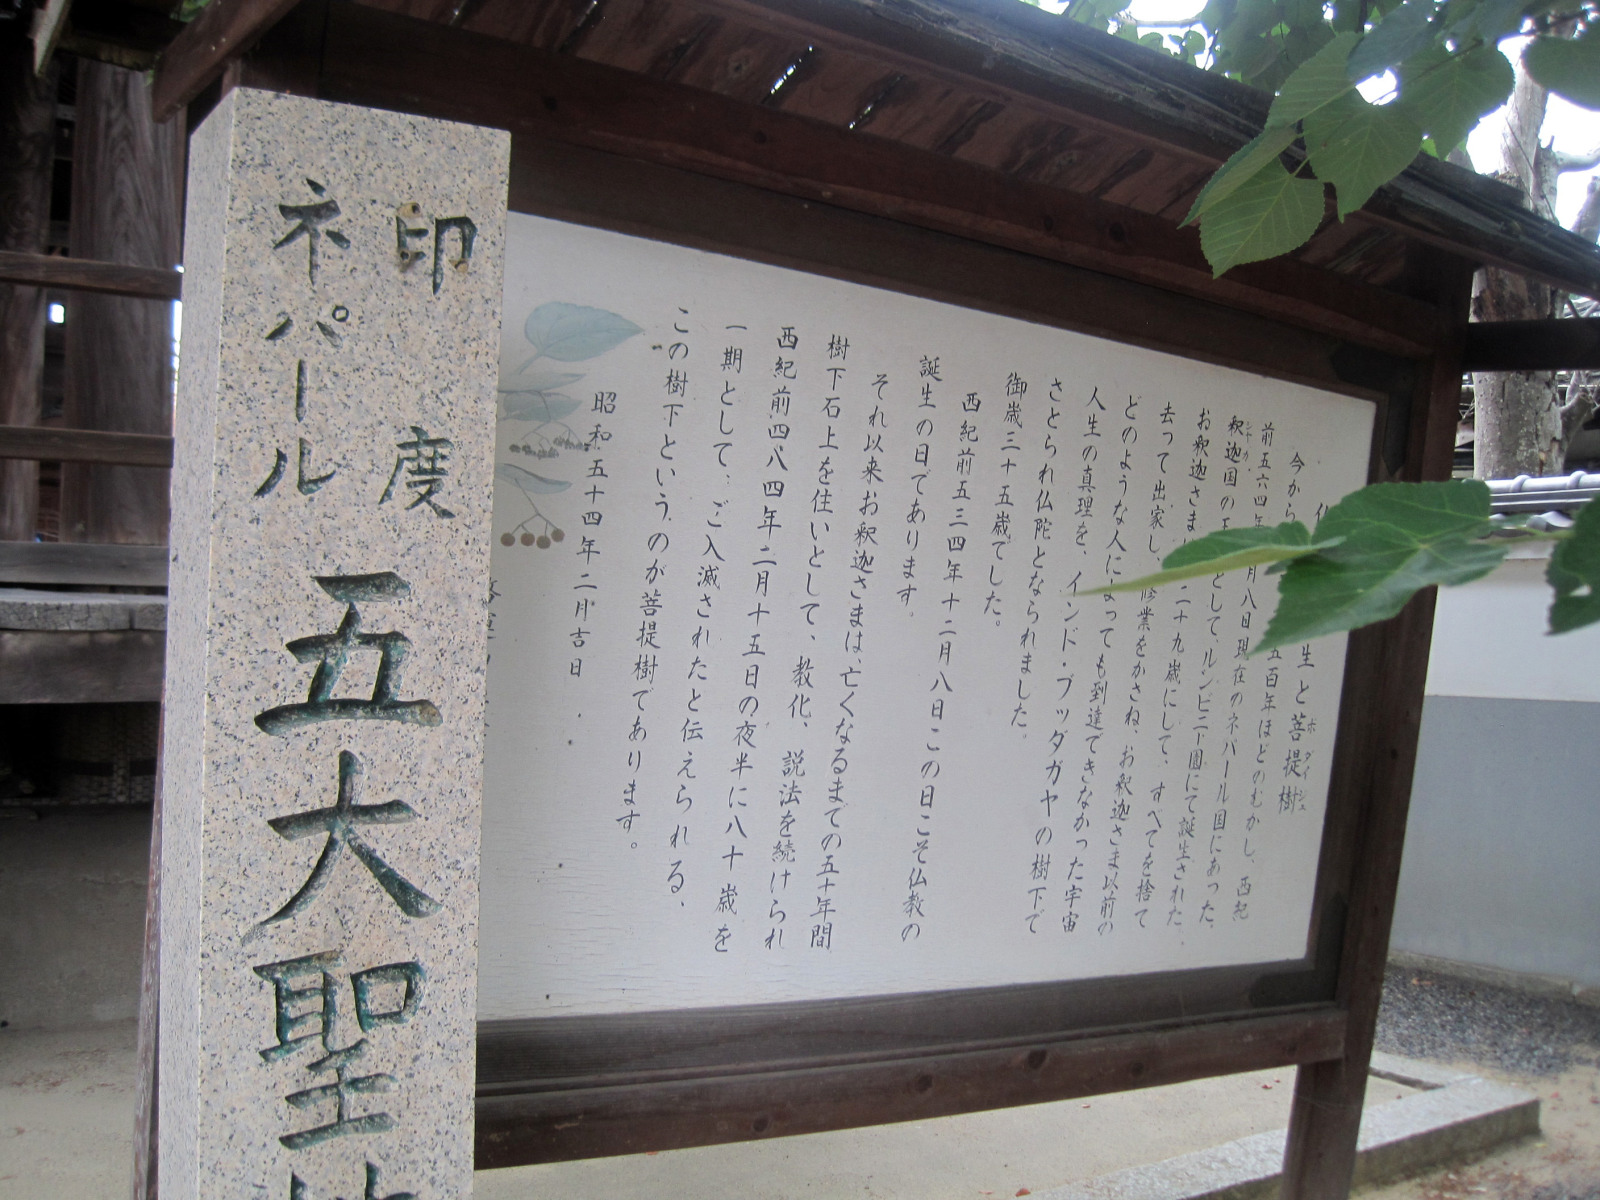 印度
ネパール
五大聖
生と菩提樹
ボダイジュ
今から
五百年ほどのむかし、西紀
前五六四年
月八日現在のネパール国にあった、
釈迦国の
シャカ
として、ルンビニー園にて誕生された、
お釈迦さま
二十九歳にして、すべてを捨て
去って出家し、
修業をかさね、お釈迦さま以前の
どのような人によっても到達できなかった宇宙
人生の真理を、インド・ブッダガヤの樹下で
さとられ仏陀となられました。
御歳三十五歳でした。
西紀前五三四年十二月八日この日こそ仏教の
誕生の日であります。
それ以来お釈迦さまは、亡くなるまでの五十年間
樹下石上を住いとして、教化、説法を続けられ
西紀前四八四年二月十五日の夜半に八十歳を
一期として、ご入滅されたと伝えられる、
この樹下というのが菩提樹であります。
昭和五十四年二月吉日